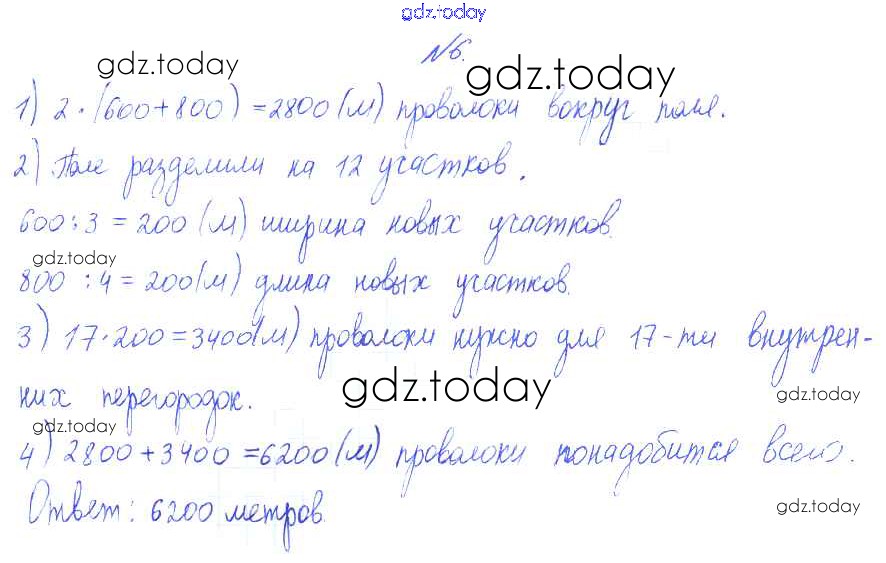 gdz.today
№6.
gdz.today
gdz.today
1) 2·(600+800)=2800(м) проволоки вокруг поля.
2) Поле разделили на 12 участков.
600:3=200(м) ширина новых участков.
gdz.today
800:4=200(м) длина новых участков.
3) 17·200=3400(м) проволоки нужно для 17-ти внутрен-
них перегородок.
gdz.today
gdz.today
gdz.today
4) 2800+3400=6200(м) проволоки понадобится всего.
Ответ: 6200 метров.
gdz.today